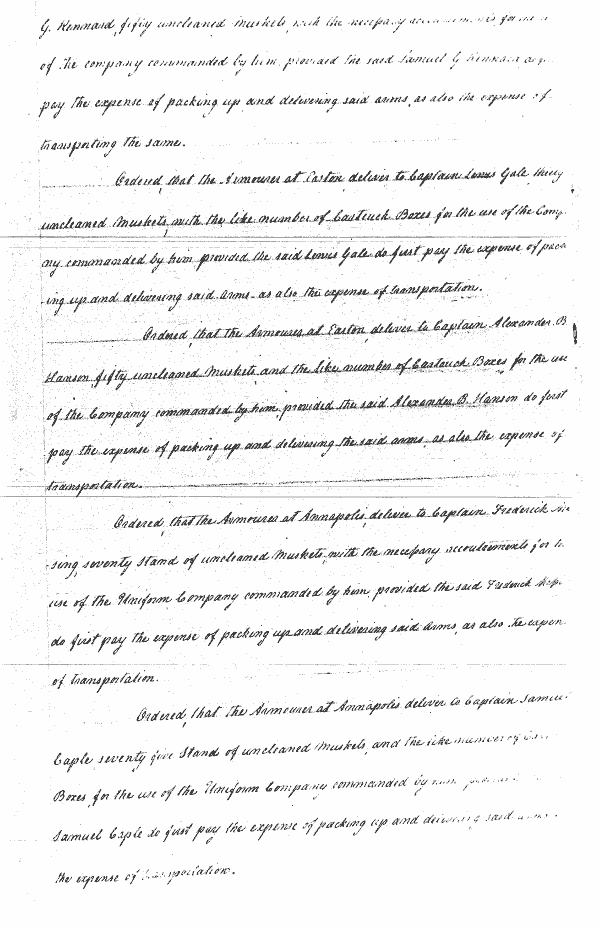 G. Kennard, fifty uncleaned Muskets, with the necessary
of the company commanded by him, provided the said Samuel G Kennard
pay the expense of packing up and delivering said arms, as also the expense of
transporting the same.
Ordered, that the Armourer at Easton deliver to Captain Gale thirty
uncleaned Muskets, with the like number of Cartouch Boxes for the use of the Comp.
ny commanded by him provided the said Gale do first pay the expense of pack
ing up and delivering said arms as also the expense of transportation.
Ordered, that the Armourer at Easton, deliver to Captain Alexander B
Hanson, fifty uncleaned Muskets, and the like number of Cartouch Boxes for the use
of the Company commanded by him, provided the said Alexander B. Hanson do first
pay the expense of packing up and delivering the said arms, as also the expense of
transportation.
Ordered, that the Armourer at Annapolis, deliver to Captain Frederick
sing, seventy Stand of uncleaned Muskets, with the necessary accoutrements for
use of the Uniform Company commanded by him, provided the said Frederick
do first pay the expense of packing up and delivering said arms, as also the expen
of transportation.
Ordered, that the Armourer at Annapolis deliver to Captain Samuel
Caple seventy five Stand of uncleaned Muskets, and the like number of
Boxes, for the use of the Uniform Company commanded by him,
Samuel Caple do first pay the expense of packing up and delivering said
the expense of transportation.